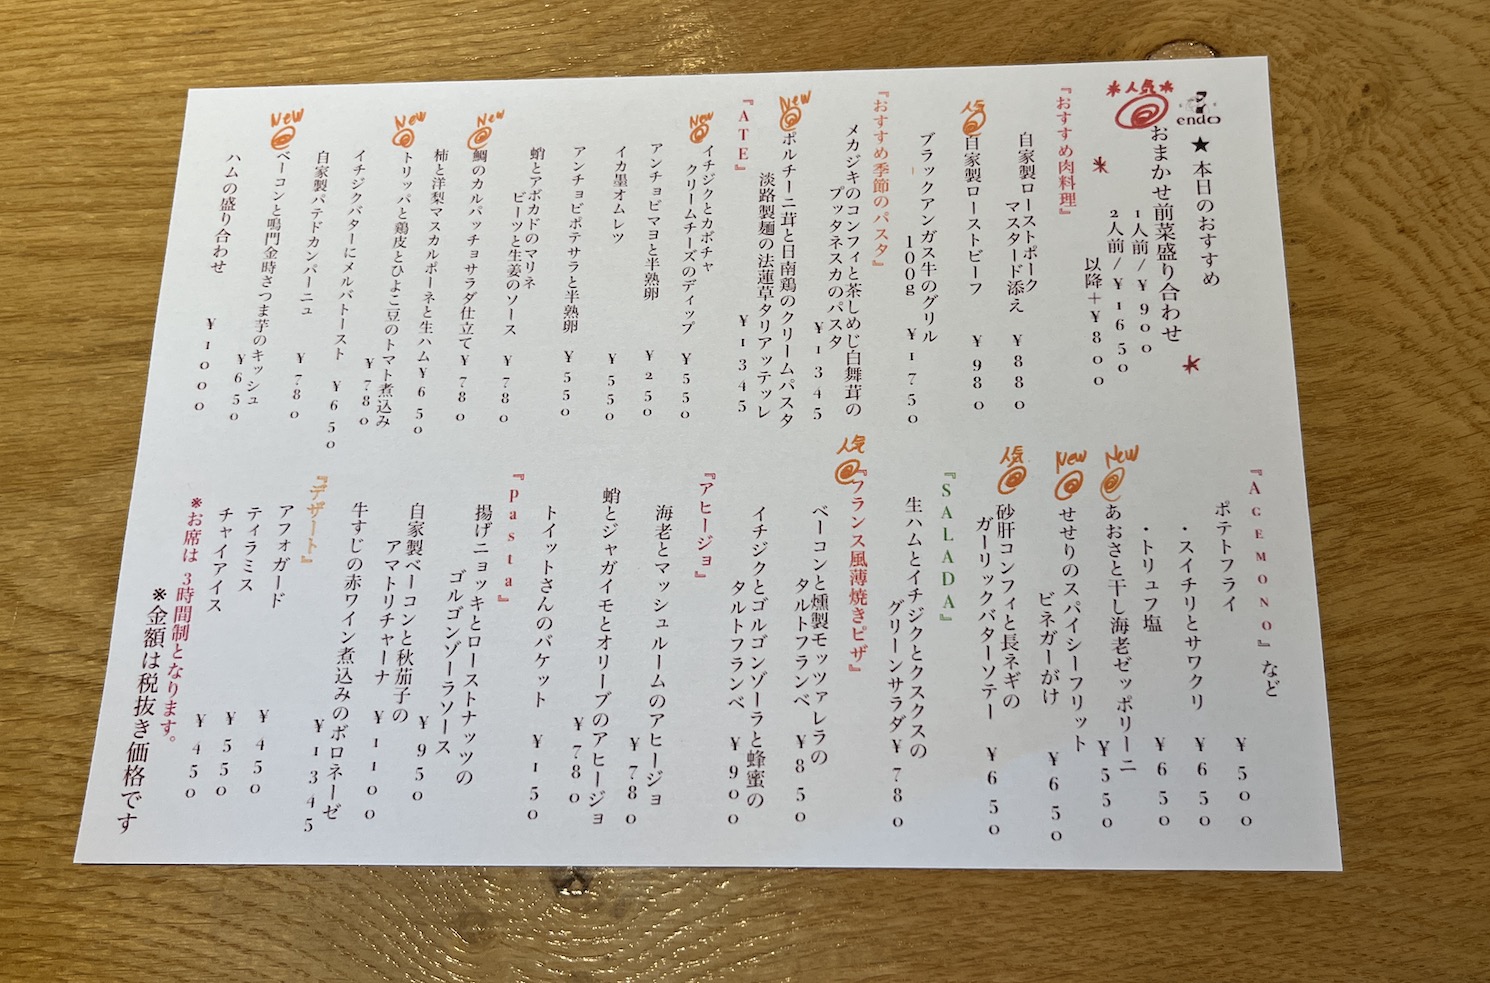 endo
★ 本日のおすすめ
*人気*
おまかせ前菜盛り合わせ
1人前/¥900
2人前/¥1650
以降+¥800
『おすすめ肉料理』
自家製ローストポーク
マスタード添え ¥880
人気
自家製ローストビーフ ¥980
ブラックアンガス牛のグリル
100g ¥1750
『おすすめ季節のパスタ』
メカジキのコンフィと茶しめじ白舞茸の
プッタネスカのパスタ
¥1345
New
ポルチーニ茸と日南鶏のクリームパスタ
淡路製麺の法蓮草タリアッテッレ
¥1345
『ATE』
New
イチジクとカボチャ
クリームチーズのディップ ¥550
アンチョビマヨと半熟卵 ¥250
イカ墨オムレツ ¥550
アンチョビポテサラと半熟卵 ¥550
蛸とアボカドのマリネ
ビーツと生姜のソース ¥780
New
鯛のカルパッチョサラダ仕立て ¥780
柿と洋梨マスカルポーネと生ハム ¥650
New
トリッパと鶏皮とひよこ豆のトマト煮込み
¥780
イチジクバターにメルバトースト ¥650
自家製パテドカンパーニュ ¥780
New
ベーコンと鳴門金時さつま芋のキッシュ
¥650
ハムの盛り合わせ ¥1000
『AGEMONO』など
ポテトフライ ¥500
・スイチリとサワクリ ¥650
・トリュフ塩 ¥650
New
あおさと干し海老ゼッポリーニ
¥550
New
せせりのスパイシーフリット
ビネガーがけ ¥650
人気
砂肝コンフィと長ネギの
ガーリックバターソテー ¥650
『SALADA』
生ハムとイチジクとクスクスの
グリーンサラダ ¥780
人気
『フランス風薄焼きピザ』
ベーコンと燻製モッツァレラの
タルトフランベ ¥850
イチジクとゴルゴンゾーラと蜂蜜の
タルトフランベ ¥900
『アヒージョ』
海老とマッシュルームのアヒージョ
¥780
蛸とジャガイモとオリーブのアヒージョ
¥780
トイットさんのバケット ¥150
『pasta』
揚げニョッキとローストナッツの
ゴルゴンゾーラソース
¥950
自家製ベーコンと秋茄子の
アマトリチャーナ ¥1100
牛すじの赤ワイン煮込みのボロネーゼ
¥1345
『デザート』
アフォガード ¥450
ティラミス ¥550
チャイアイス ¥450
※お席は 3時間制となります。
※金額は税抜き価格です